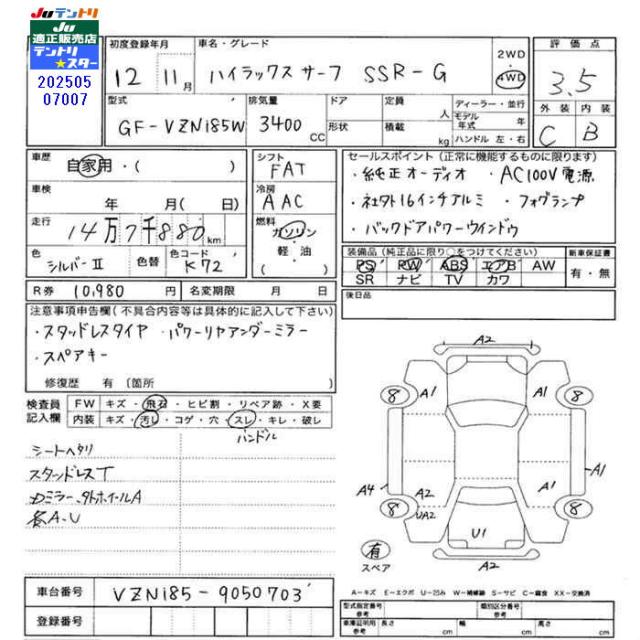 JUテントリ
JU
適正販売店
テントリ
スター
202505
07007
初度登録年月
12年11月
車名・グレード
ハイラックスサーフ SSR-G
2WD
4WD
評価点
3.5
外装 内装
C B
型式
GF-VZN185W
排気量
3400cc
ドア
形状
定員
人
積載
kg
ディーラー・並行
モデル年式
年
ハンドル 左・右
車歴
自家用・( )
車検
年 月(日)
走行
14万7千880km
色
シルバーII
色替
色コード
K72
シフト
FAT
冷房
AAC
燃料
ガソリン
軽・油
( )
セールスポイント(正常に機能するものに限ります)
・純正オーディオ ・AC100V電源
・社外16インチアルミ ・フォグランプ
・バックドアパワーウインドウ
装備品(純正品に限り○をつけてください)
PS PW ABS エアB AW
SR ナビ TV カワ
新車保証書
有・無
R券 10,980円
名変期限 月 日
後日品
注意事項申告欄(不具合内容等は具体的に記入して下さい)
・スタッドレスタイヤ ・パワーリヤアンダーミラー
・スペアキー
修復歴 有 〔箇所 〕
検査員
記入欄
FW キズ・飛石・ヒビ割・リペア跡・X要
内装 キズ・汚レ・コゲ・穴・スレ・キレ・破レ
ハンドル
シートヘタリ
スタッドレスT
カミラー、外ホイールA
各A-U
A2
8
A1
A1
8
A4
A2
UA2
8
A1
A1
8
U1
A2
有
スペア
A-キズ E-エクボ U-凹み W-補修跡 S-サビ C-腐食 XX-交換済
車台番号 VZN185-9050703
登録番号
型式指定番号
類別区分番号
車庫証明用参考
長さ cm
幅 cm
高さ cm